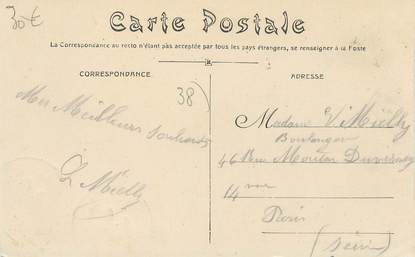 30€
Carte Postale
La Correspondance au recto n'étant pas acceptée par tous les pays étrangers, se renseigner à la Poste
CORRESPONDANCE
ADRESSE
38)
Mes Meilleurs Souhaits
Mielly
Madame Mielly
Boulanger
46 Rue Mouton Duvernet
14me
Paris
(Seine)